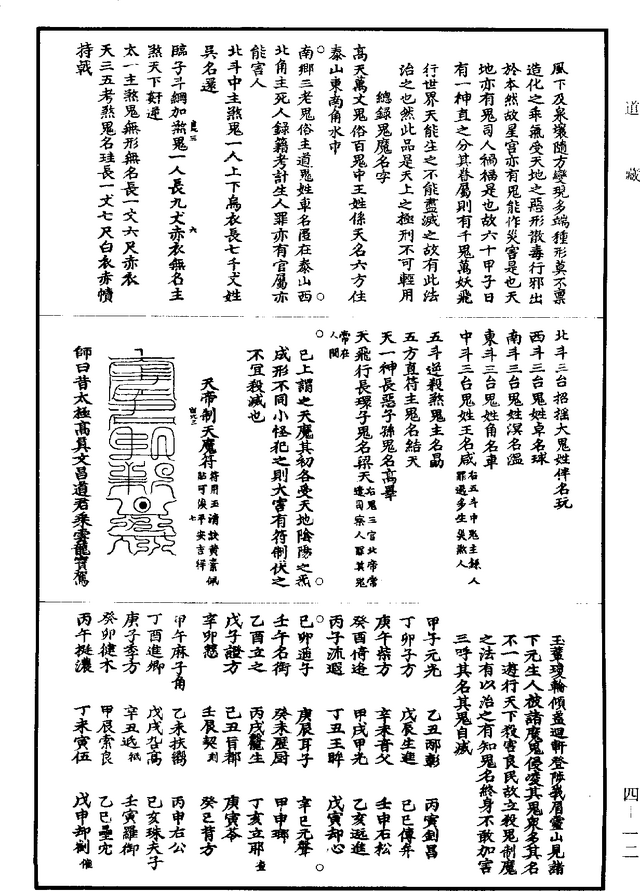 道藏
風下及泉壤隨方變現多端種形莫不禀
造化之乖氣受天地之惡形散毒行邪出
於本然故星宫亦有鬼能作災害是也天
地亦有鬼司人禍福是也故六十甲子日
有一神直之分其眷屬則有千鬼萬妖飛
行世界天能生之不能盡滅之故有此法
治之也然此品是天上之極刑不可輕用
總録鬼魔名字
高天萬丈鬼俗百鬼中王姓係天名六方住
泰山東南角水中
南鄉三老鬼俗主道鬼姓車名匿在泰山西
北角主死人録籍考計生人罪亦有官屬亦
能害人
北斗中主煞鬼一人上下烏衣長七千丈姓
吳名遂
臨子斗綱加煞鬼一人長九丈赤衣無名主
煞天下奸逆
太一主煞鬼無形無名長一丈六尺赤衣
天三五考煞鬼名珪長一丈七尺白衣赤幘
持戟
北斗三台招搖大鬼姓伴名玩
西斗三台鬼姓卓名球
南斗三台鬼姓溟名温
東斗三台鬼姓角名車
中斗三台鬼姓王名咸右五斗中鬼主録人罪過多生災欺人
五斗逆殺煞鬼主名勗
五方直符主鬼名結天
天一神長惡子孫鬼名高畢
天飛行長環子鬼名梁天右鬼三官北帝常遣司察人罪其鬼常在人間
已上謂之天魔其初各受天地陰陽之炁
成形不同小怪犯之則大害有符制伏之
不宜殺滅也
天帝制天魔符符用玉清訣黄素佩貼可保平安吉祥
師曰昔太極高真文昌道君乘雲龍寳駕
玉葦瓊輪傾蓋迴軿登陟峨眉靈山見諸
下元生人被諸魔鬼侵凌其鬼衆多其名
不一遊行天下殺害良民故立殺鬼制魔
之法有以治之有知鬼名終身不敢加害
三呼其名其鬼自滅
甲子元光 乙丑邴彰 丙寅劉昌
丁卯子方 戊辰生進 己巳傅年
庚午紫方 辛未青父 壬申右松
癸酉倚逄 甲戌甲光 乙亥返進
丙子流遐 丁丑王眸 戊寅却心
己卯適子 庚辰耳子 辛巳元聲
壬午名衒 癸未歷厨 甲申瑯
乙酉立之 丙戌鷖生 丁亥立耶
戊子證方 己丑百都 庚寅苓
辛卯懸 壬辰契 癸巳昔方
甲午麻子角 乙未扶嚮 丙申右公
丁酉進卿 戊戌岳高 己亥珠天子
庚子季方 辛丑逃 壬寅羅御
癸卯徤木 甲辰索良 乙巳壘宂
丙午挺濃 丁未寅伍 戊申却劉
四—一二